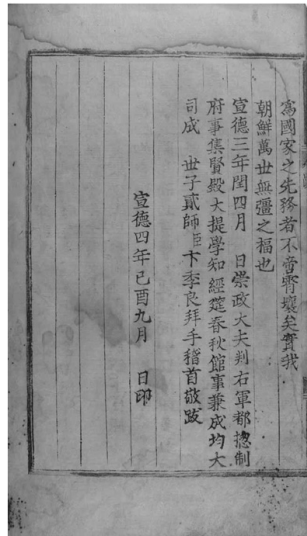 爲國家之先務者不啻霄壤矣實我
朝鮮萬世無疆之福也
宣德三年閏四月 日崇政大夫判右軍都摠制
府事集賢殿大提學知經筵春秋館事兼成均大
司成 世子貳師臣卞季良拜手稽首敬跋
宣德四年己酉九月 日印